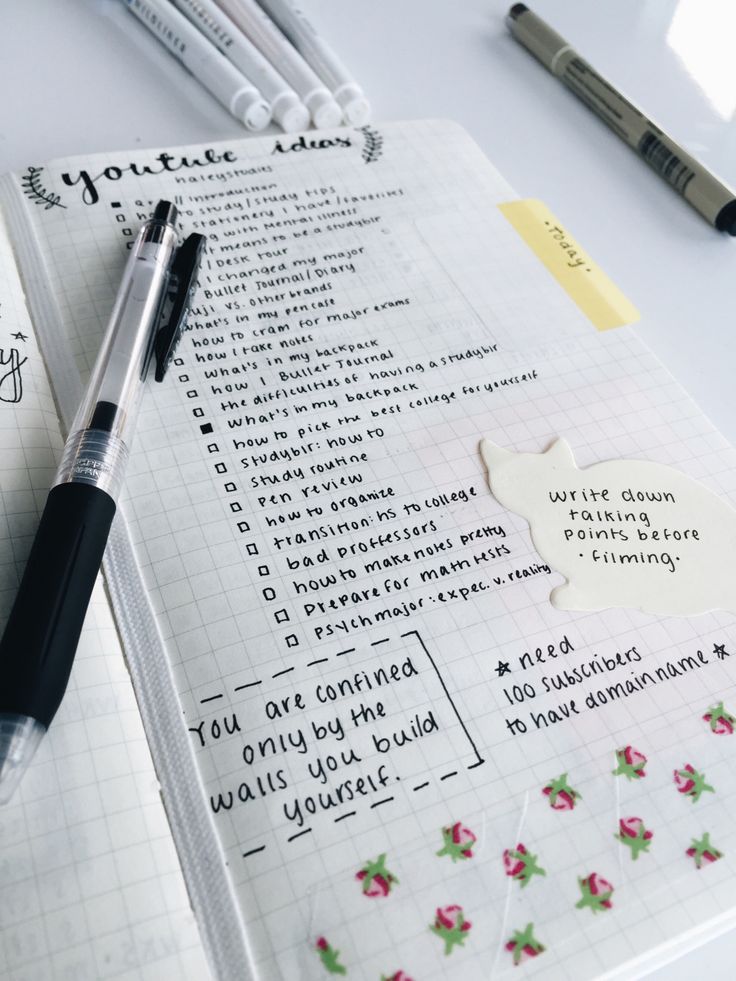 WILDLINER
youtube ideas
haleystudies
introduction
to study/study tips
stationery I have/favorites
with mental illness
it means to be a studyblr
/Desk tour
I changed my major
Bullet Journal/Diary
vs. other brands
what's in my pencase
how to cram for major exams
how I take notes
what's in my backpack
how I Bullet Journal
the difficulties of having a studyblr
what's in my backpack
how to pick the best college for yourself
studyblr: how to
study routine
pen review
how to organize
transition: hs to college
bad proffessors
how to make notes pretty
prepare for math tests
psych major: expec. v. reality
• Today •
write down
talking
points before
• filming •
You are confined
only by the
walls you build
yourself.
☆ need
100 subscribers
to have domain name ☆